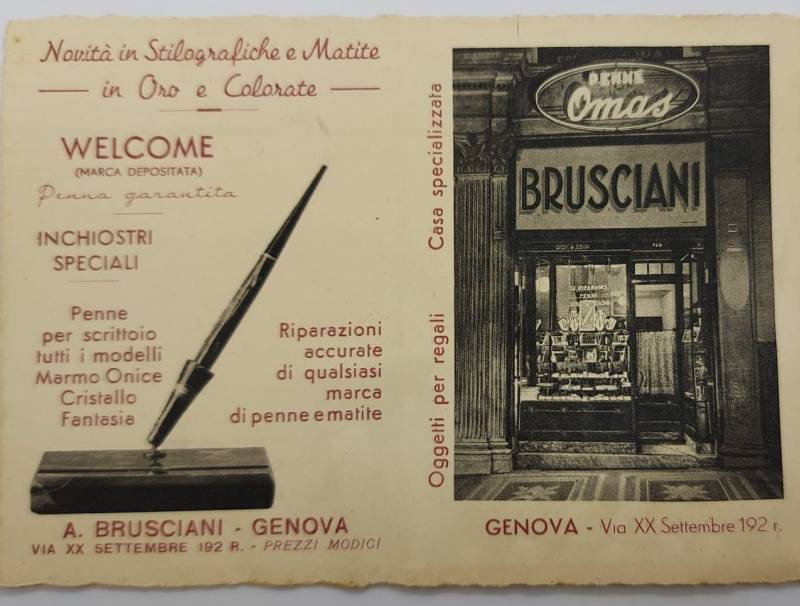 Novità in Stilografiche e Matite
in Oro e Colorate
WELCOME
(MARCA DEPOSITATA)
Penna garantita
INCHIOSTRI
SPECIALI
Penne
per scrittoio
tutti i modelli
Marmo Onice
Cristallo
Fantasia
Riparazioni
accurate
di qualsiasi
marca
di penne e matite
A. BRUSCIANI - GENOVA
VIA XX SETTEMBRE 192 R. - PREZZI MODICI
Oggetti per regali Casa specializzata
PENNE
Omas
BRUSCIANI
SI RIPARANO
PENNE
GENOVA - Via XX Settembre 192 r.